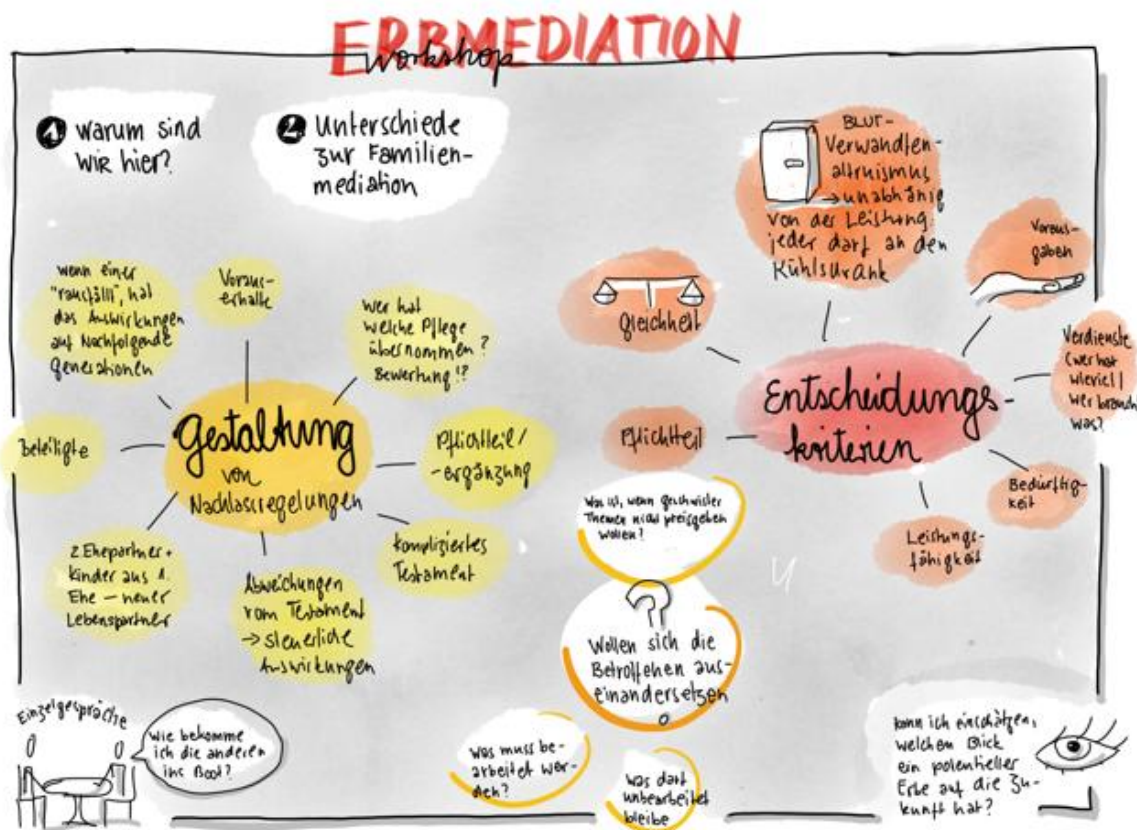 ERBMEDIATION
workshop
1. Warum sind
wir hier?
2. Unterschiede
zur Familien-
mediation
wenn einer
"rausfällt", hat
das Auswirkungen
auf Nachfolgende
Generationen
Voraus-
erhalte
Wer hat
welche Pflege
übernommen?
Bewertung!?
Beteiligte
Gestaltung
von
Nachlassregelungen
Pflichtteil/
-ergänzung
2 Ehepartner +
Kinder aus 1.
Ehe – neuer
Lebenspartner
Abweichungen
vom Testament
→ steuerliche
Auswirkungen
kompliziertes
Testament
BLUT-
Verwandten-
altruismus
→ unabhängig
von der Leistung
jeder darf an den
Kühlsurank
Voraus-
gaben
Gleichheit
Verdienste
(wer hat
wieviel/
wer braucht
was?
Entscheidungs-
kriterien
Pflichtteil
Bedürftig-
keit
Leistungs-
fähigkeit
Was ist, wenn Geschwister
Themen nicht preisgeben
wollen?
?
Wollen sich die
Betroffenen aus-
einandersetzen
Was muss be-
arbeitet wer-
den?
Was darf
unbearbeitet
bleibe
Einzelgespräche
Wie bekomme
ich die anderen
ins Boot?
kann ich einschätzen,
welchen Blick
ein potentieller
Erbe auf die Zu-
kunft hat?